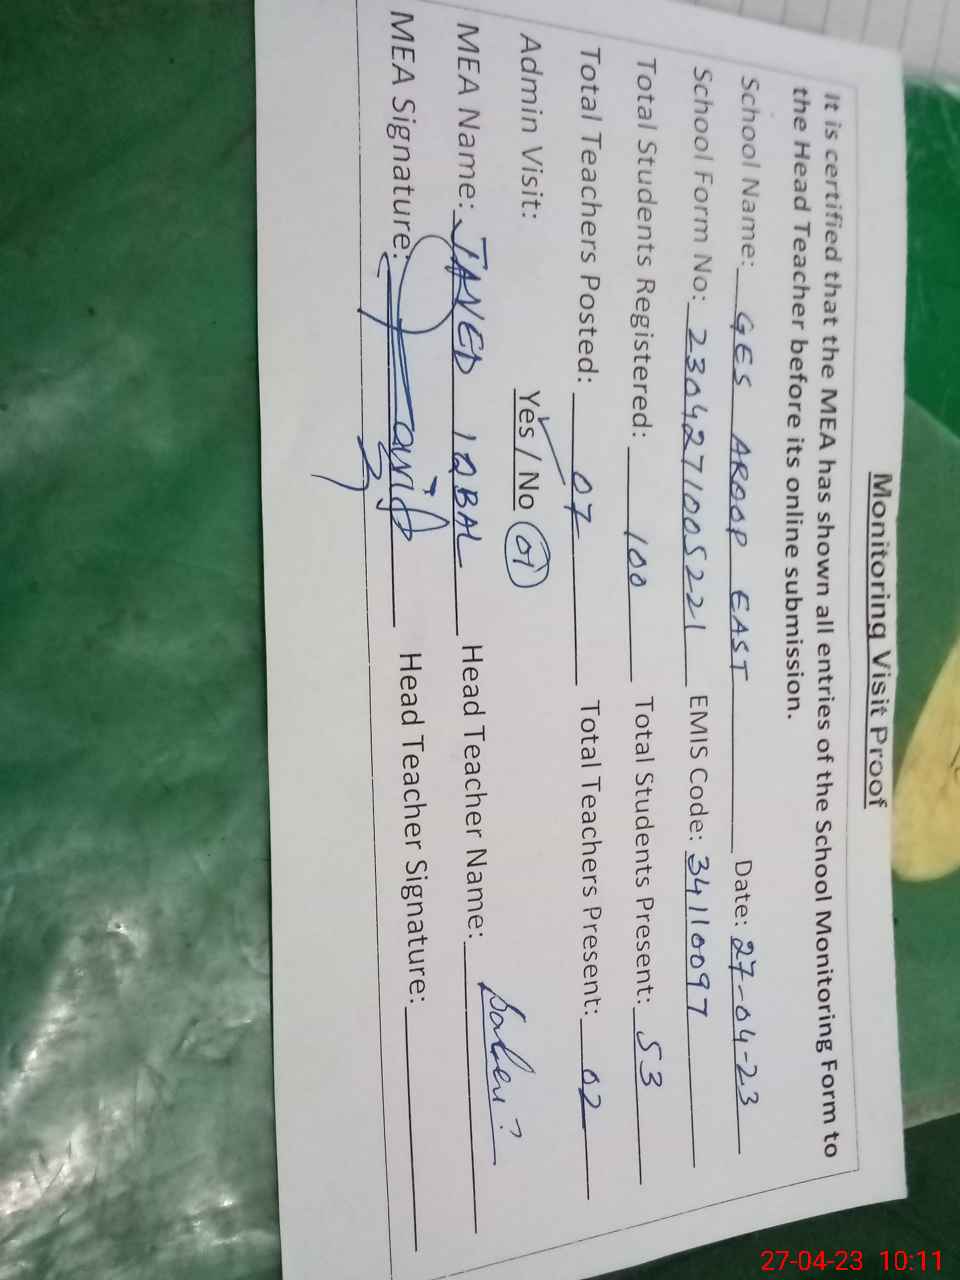 Monitoring Visit Proof
It is certified that the MEA has shown all entries of the School Monitoring Form to
the Head Teacher before its online submission.
School Name: GES AROOP EAST Date: 27-04-23
School Form No: 2304271005221 EMIS Code: 34110097
Total Students Registered: 100 Total Students Present: 53
Total Teachers Posted: 07 Total Teachers Present: 02
Admin Visit: Yes / No 01
MEA Name: JAVED IQBAL Head Teacher Name:
MEA Signature: Head Teacher Signature:
27-04-23 10:11